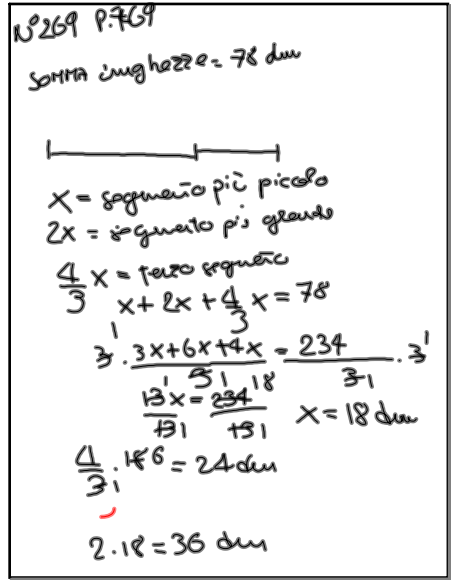 N°269 P.769
SOMMA lunghezze = 78 dm
x = segmento più piccolo
2x = segmento più grande
4/3 x = terzo segmento
x + 2x + 4/3 x = 78
3¹ · (3x+6x+4x)/3₁ = 234/3₁ · 3¹
13¹x/13₁ = 234¹⁸/13₁ x = 18 dm
4/3₁ · 18⁶ = 24 dm
2 · 18 = 36 dm